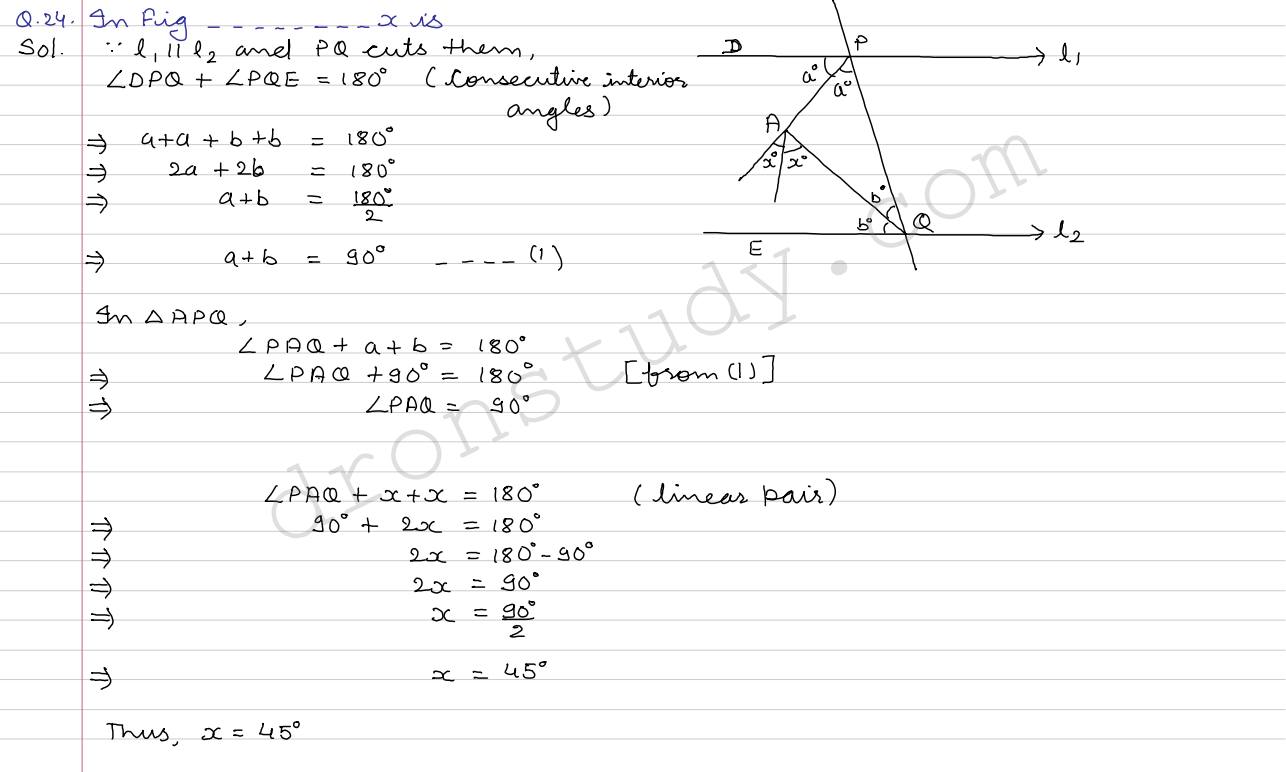 Q.24. In Fig _ _ _ _ _ _ _ _ _ x is
Sol. ∵ l₁ || l₂ and PQ cuts them,
∠DPQ + ∠PQE = 180° (Consecutive interior
angles)
⇒ a+a + b+b = 180°
⇒ 2a + 2b = 180°
⇒ a+b = 180°/2
⇒ a+b = 90° _ _ _ _ (1)
In △APQ,
∠PAQ + a+b = 180°
⇒ ∠PAQ + 90° = 180° [from (1)]
⇒ ∠PAQ = 90°
∠PAQ + x+x = 180° (linear pair)
⇒ 90° + 2x = 180°
⇒ 2x = 180° - 90°
⇒ 2x = 90°
⇒ x = 90°/2
⇒ x = 45°
Thus, x = 45°
D P l₁
a° a°
A
x° x°
b°
b° Q l₂
E
dronstudy.com